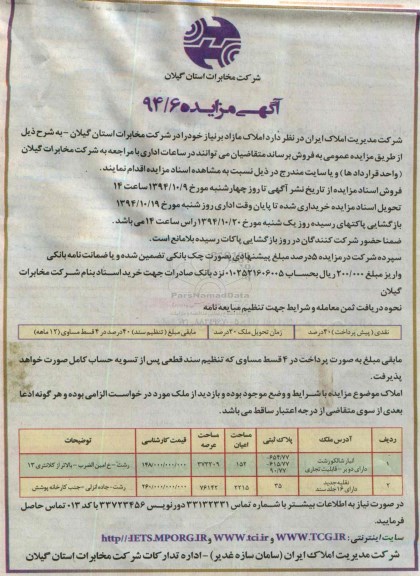 شرکت مخابرات استان گیلان
آگهی مزایده ۹۴/۶
شرکت مدیریت املاک ایران در نظر دارد املاک مازاد بر نیاز خود را در شرکت مخابرات استان گیلان - به شرح ذیل
از طریق مزایده عمومی به فروش برساند متقاضیان می توانند در ساعات اداری با مراجعه به شرکت مخابرات گیلان
(واحد قراردادها) و یا سایت مندرج در ذیل نسبت به مشاهده اسناد مزایده اقدام نمایند.
فروش اسناد مزایده از تاریخ نشر آگهی تا روز چهارشنبه مورخ ۱۳۹۴/۱۰/۹ ساعت ۱۴
تحویل اسناد مزایده خریداری شده تا پایان وقت اداری روز شنبه مورخ ۱۳۹۴/۱۰/۱۹
بازگشایی پاکتهای رسیده روز یک شنبه مورخ ۱۳۹۴/۱۰/۲۰ راس ساعت ۱۴ می باشد.
ضمنا حضور شرکت کنندگان در روز بازگشایی پاکات رسیده بلامانع است.
سپرده شرکت در مزایده ۵درصد مبلغ پیشنهادی بصورت چک بانکی تضمین شده و یا ضمانت نامه بانکی
واریز مبلغ ۲۰۰/۰۰۰ ریال بحساب ۰۱۰۲۵۲۱۶۰۶۰۰۵ نزد بانک صادرات جهت خرید اسناد بنام شرکت مخابرات
گیلان
ParsNamadData
نحوه دریافت ثمن معامله و شرایط جهت تنظیم مبایعه نامه
نقدی (پیش پرداخت) ۴۰درصد زمان تحویل ملک ۲۰درصد مابقی مبلغ (تنظیم سند) ۴۰درصد در ۴ قسط مساوی (۱۲ ماهه)
مابقی مبلغ به صورت پرداخت در ۴ قسط مساوی که تنظیم سند قطعی پس از تسویه حساب کامل صورت خواهد
پذیرفت.
املاک موضوع مزایده با شرایط و وضع موجود بوده و بازدید از ملک مورد درخواست الزامی بوده و هر گونه ادعا
بعدی از سوی متقاضی از درجه اعتبار ساقط می باشد.
ردیف آدرس ملک پلاک ثبتی مساحت اعیان مساحت عرصه قیمت کارشناسی توضیحات
۱ انبار شالکو رشت دارای دو بر - قابلیت تجاری ۱۵۴ ۳۷۳۲۰۹ ۱۴۸/۰۰۰/۰۰۰/۰۰۰ رشت - خ امین الضرب - بالاتر از کلانتری ۱۳
۲ نقلیه جدید دارای ۱۴ جلد سند ۳۵ ۲۲۱۵ ۷۶۱۴۲ ۲۴۰/۰۰۰/۰۰۰/۰۰۰ رشت - جاده انزلی - جنب کارخانه پوشش
در صورت نیاز به اطلاعات بیشتر با شماره تماس ۳۳۱۳۲۳۳۱ دورنویس ۳۳۷۲۳۴۵۶ با کد ۰۱۳ تماس حاصل
فرمایید.
سایت اینترنتی: WWW.TCG.IR و www.tci.ir و http//:IETS.MPORG.IR
شرکت مدیریت املاک ایران (سامان سازه غدیر) - اداره تدارکات شرکت مخابرات استان گیلان